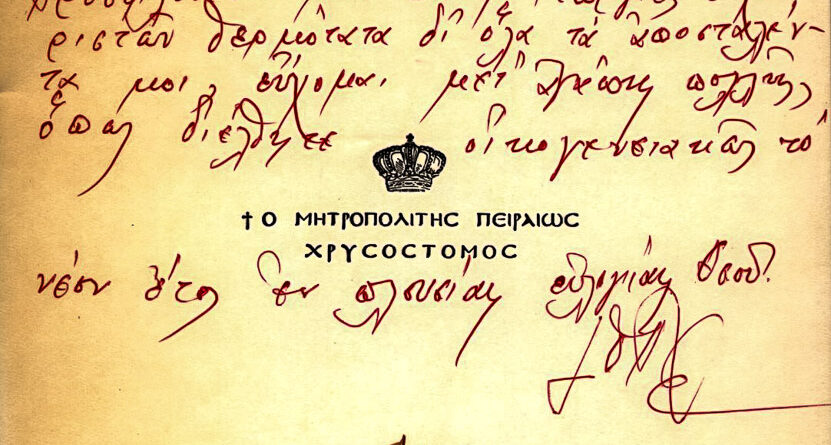 ριστῶν θερμότατα δι' ὅλα τὰ ἀποσταλέν-
τα μοι, εὔχομαι, μετ' ἀγάπης πολλῆς,
ὅπως διέλθητε οἰκογενειακῶς τὸ
† Ο ΜΗΤΡΟΠΟΛΙΤΗС ΠΕΙΡΑΙΩС
ΧΡΥСΟСΤΟΜΟС
νέον ἔτος ἐν πλουσίᾳ εὐλογίᾳ Θεοῦ.